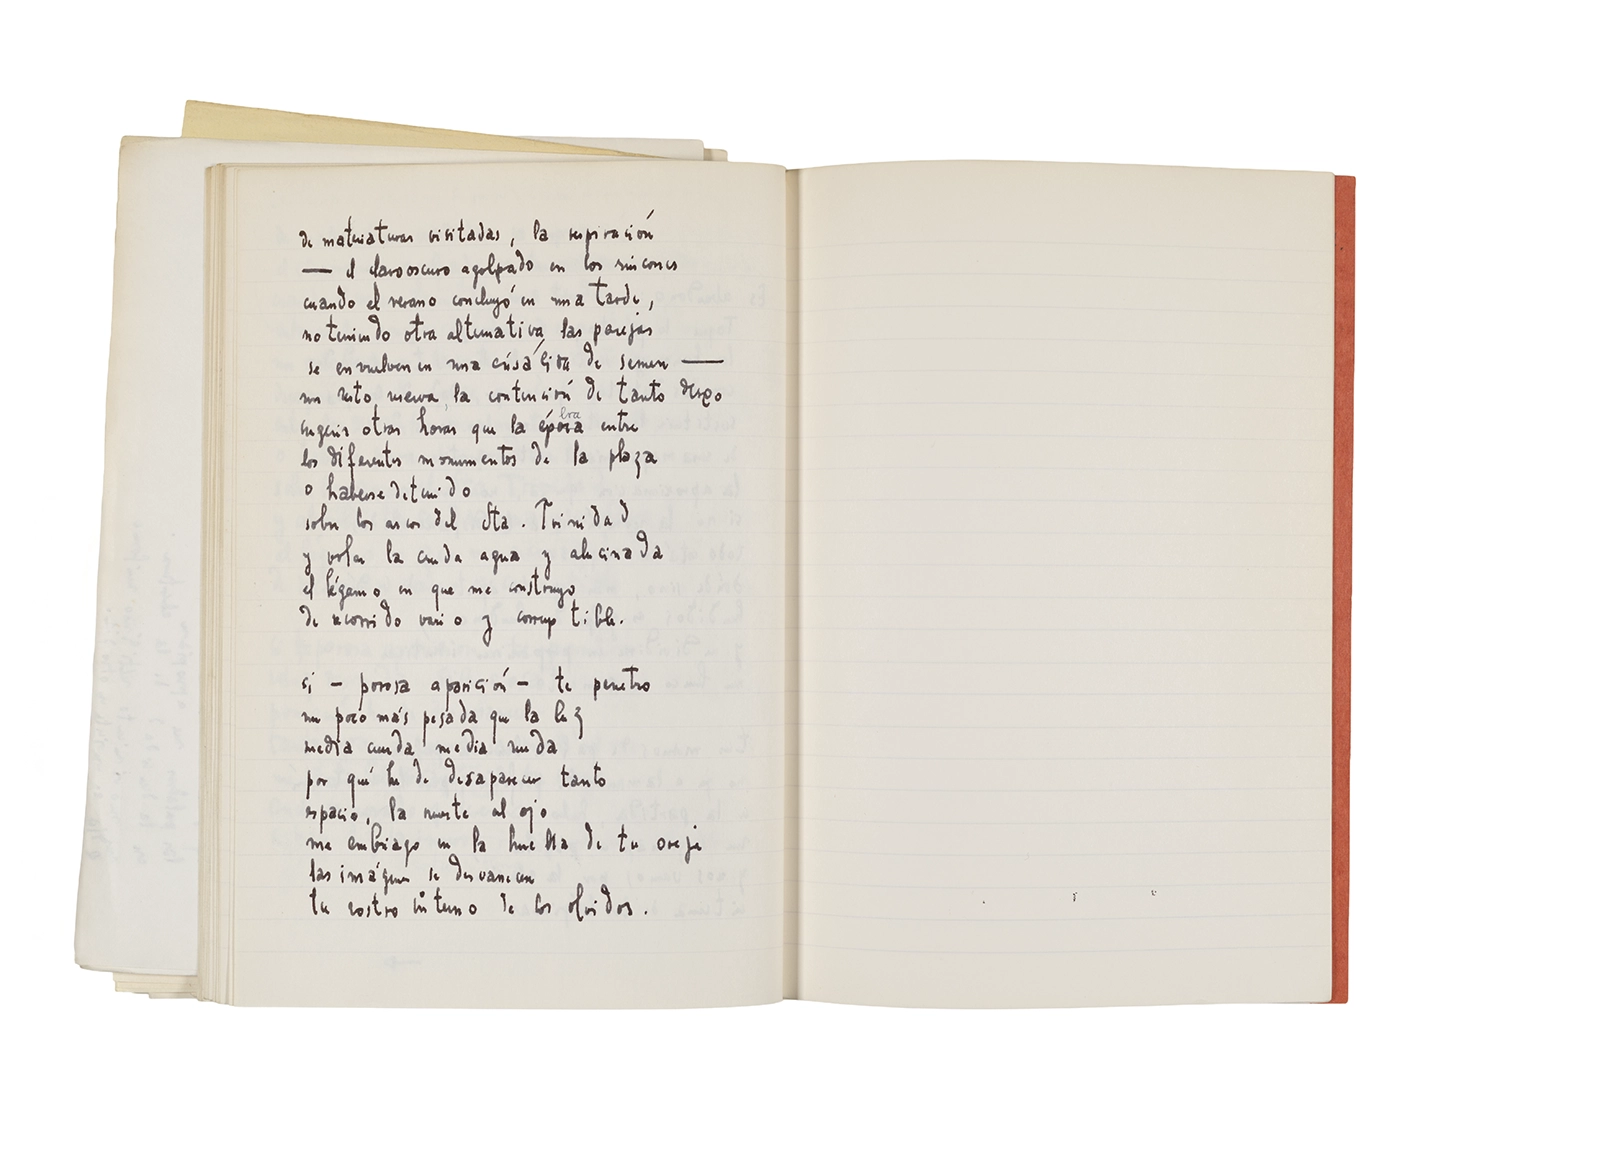 de mataduras visitadas, la respiración
— el claroscuro agolpado en los rincones
cuando el verano concluyó en una tarde,
no teniendo otra alternativa las parejas
se envuelven en una crisálida de semen —
un resto nueva la contención de tanto deseo
sugerir otras horas que la época entre
los diferentes monumentos de la plaza
o haberse detenido
sobre los arcos del Sta. Trinidad
y volar la cruda agua y alucinada
el légamo en que me construyo
de recorrido vario y corruptible.
si – porosa aparición – te penetro
un poco más pesada que la luz
media cruda media muda
por qué he de desaparecer tanto
espacio, la muerte al ojo
me embriago en la huella de tu oreja
las imágenes se desvanecen
tu rostro interno de los olvidos.